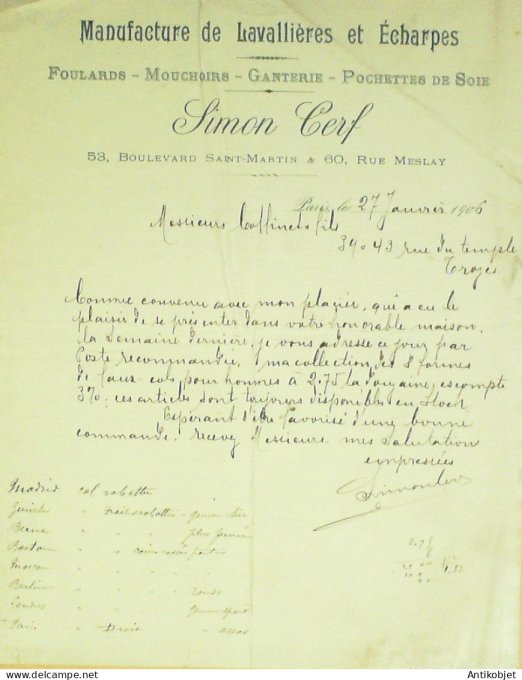 Manufacture de Lavallières et Écharpes
FOULARDS - MOUCHOIRS - GANTERIE - POCHETTES DE SOIE
Simon Cerf
53, BOULEVARD SAINT-MARTIN & 60, RUE MESLAY
Paris, le 27 Janvier 1906
Messieurs Coffinet & fils
39 & 43 rue du temple
Troyes
Comme convenu avec mon placier, qui a eu le
plaisir de se présenter dans votre honorable maison,
la semaine dernière, je vous adresse ce jour par
Poste recommandée, ma collection des 8 formes
de faux-cols pour hommes à 2.75 la douzaine, escompte
3%, ces articles sont toujours disponibles en Stock
Espérant d'être favorisé d'une bonne
commande, recevez Messieurs mes salutations
empressées
Simon Cerf
Madrid col rabattu
Zurich " "
Berne " "
Boston " " coins cassés pointus
Moscou " " "
Berlin " " " ronds
Londres " " "
Paris " Droit "
Antikobjet.com